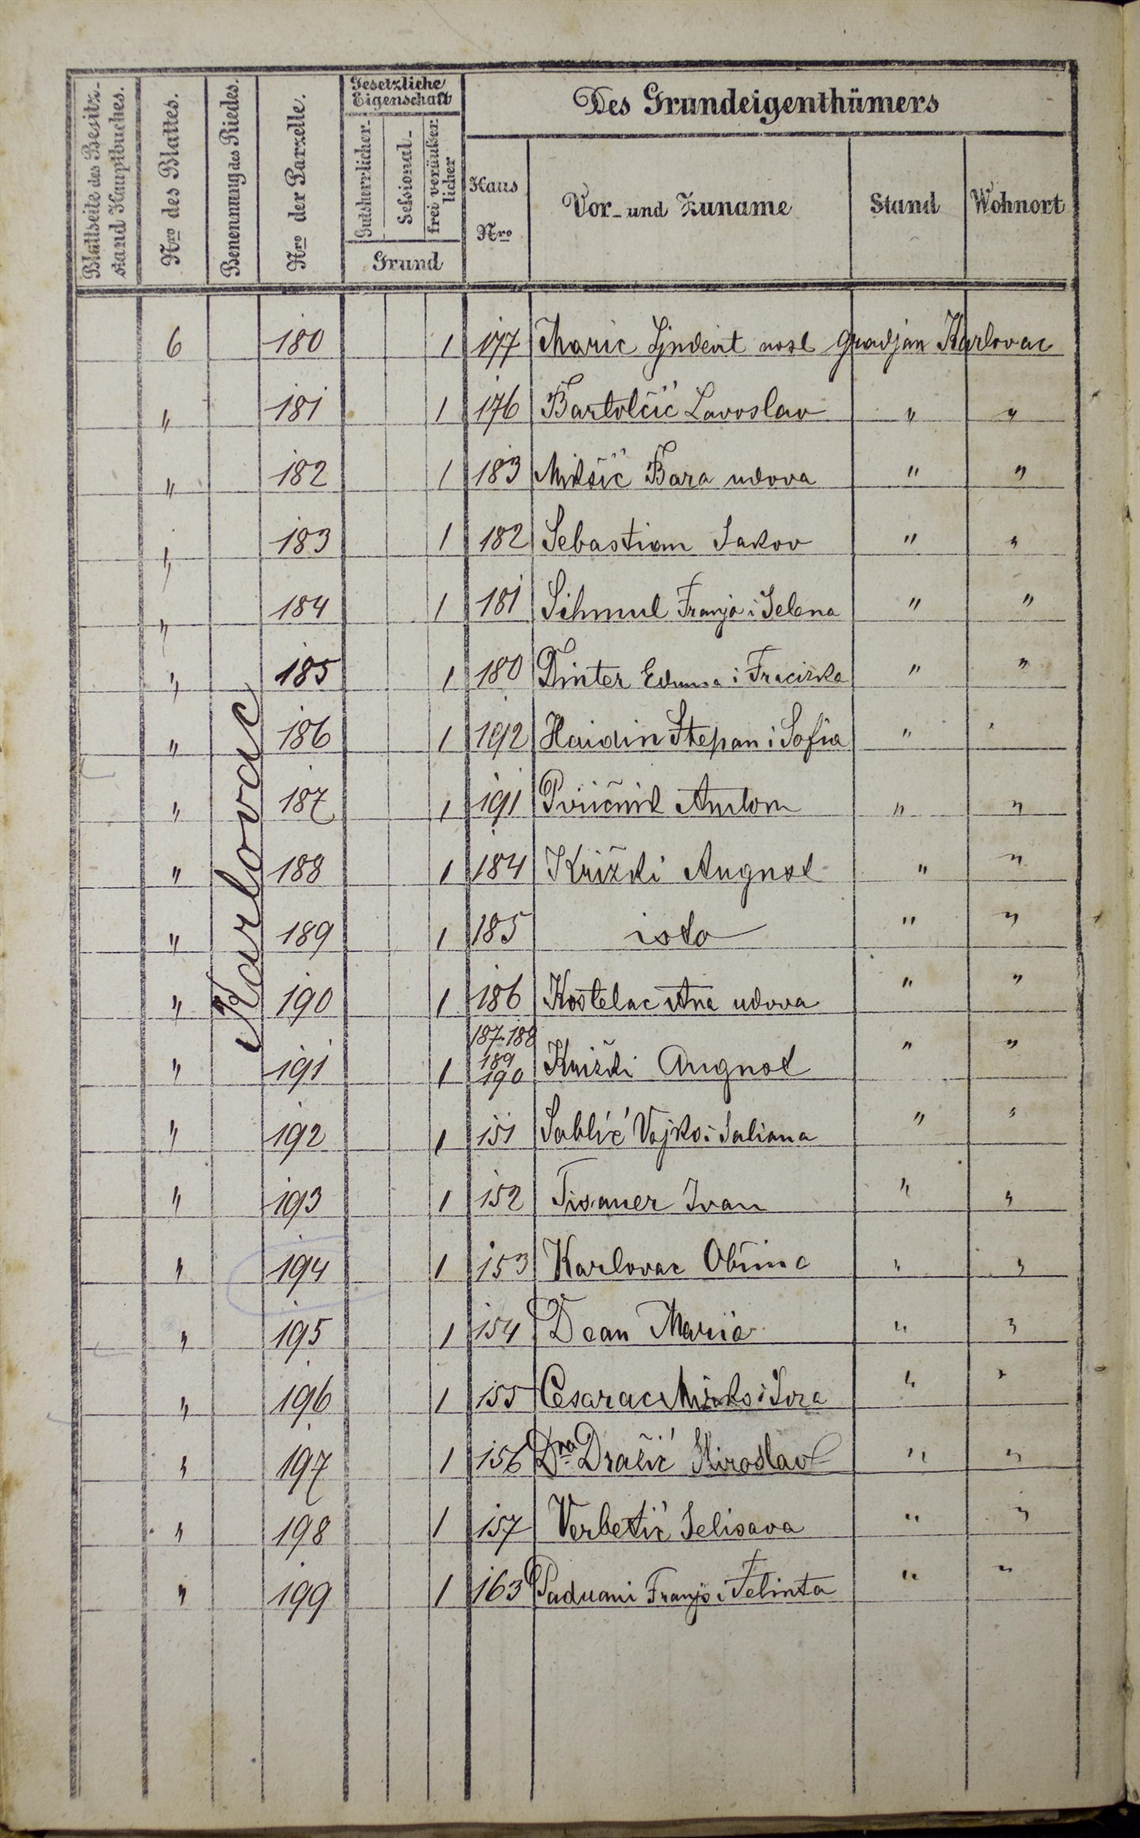 Blattseite des Besitz-
stand Hauptbuches.
Nro des Blattes.
Benennung des Riedes.
Nro der Parzelle.
Gesetzliche
Eigenschaft
Gutsherrlicher-
Sessional-
frei veräußer-
licher
Grund
Des Grundeigenthümers
Haus
Nro
Vor- und Zuname
Stand
Wohnort
Karlovac
6 180 1 177 Maric Ljudevit nasl gradjan Karlovac
" 181 1 176 Bartolčić Lavoslav " "
" 182 1 183 Mikšić Bara udova " "
" 183 1 182 Sebastian Jakov " "
" 184 1 181 Franjo i Jelena " "
" 185 1 180 i " "
" 186 1 192 Haidin Stepan i Sofia " "
" 187 1 191 " "
" 188 1 184 Križki August " "
" 189 1 185 isto " "
" 190 1 186 Kostelac Ana udova " "
" 191 1 187·188 189 190 Križki August " "
" 192 1 151 Sablić i " "
" 193 1 152 Ivan " "
" 194 1 153 Karlovac " "
" 195 1 154 Dean " "
" 196 1 155 Cesarac Mirko i " "
" 197 1 156 Dro Miroslav " "
" 198 1 157 Verbetić Jelisava " "
" 199 1 163 Paduani Franjo i " "